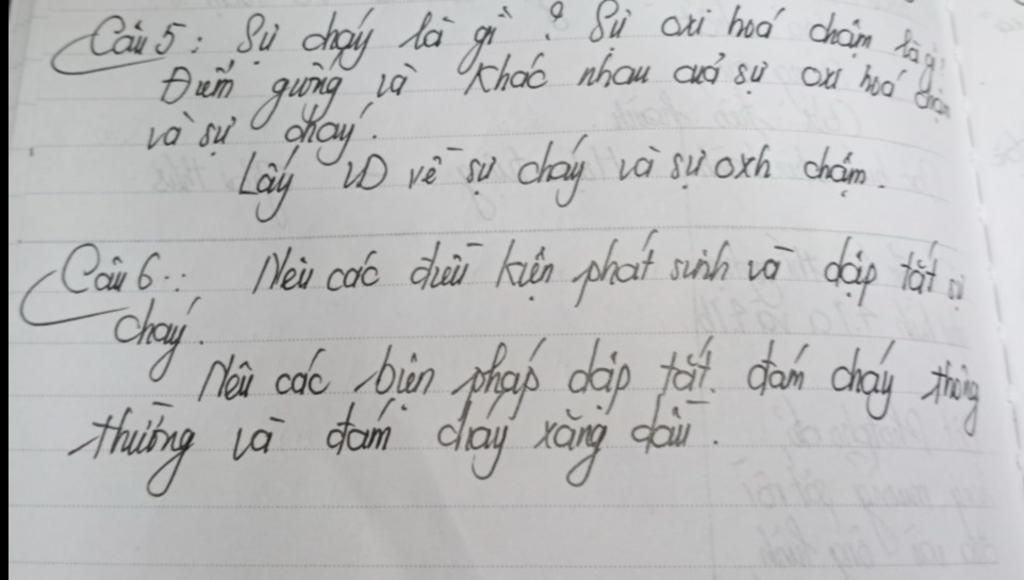 Câu 5: Sự cháy là gì? Sự oxi hoá chậm là gì?
Điểm giống và khác nhau của sự oxi hoá chậm
và sự cháy.
Lấy VD về sự cháy và sự oxh chậm.
Câu 6: Nêu các điều kiện phát sinh và dập tắt sự
cháy.
Nêu các biện pháp dập tắt đám cháy thông
thường và đám cháy xăng dầu.